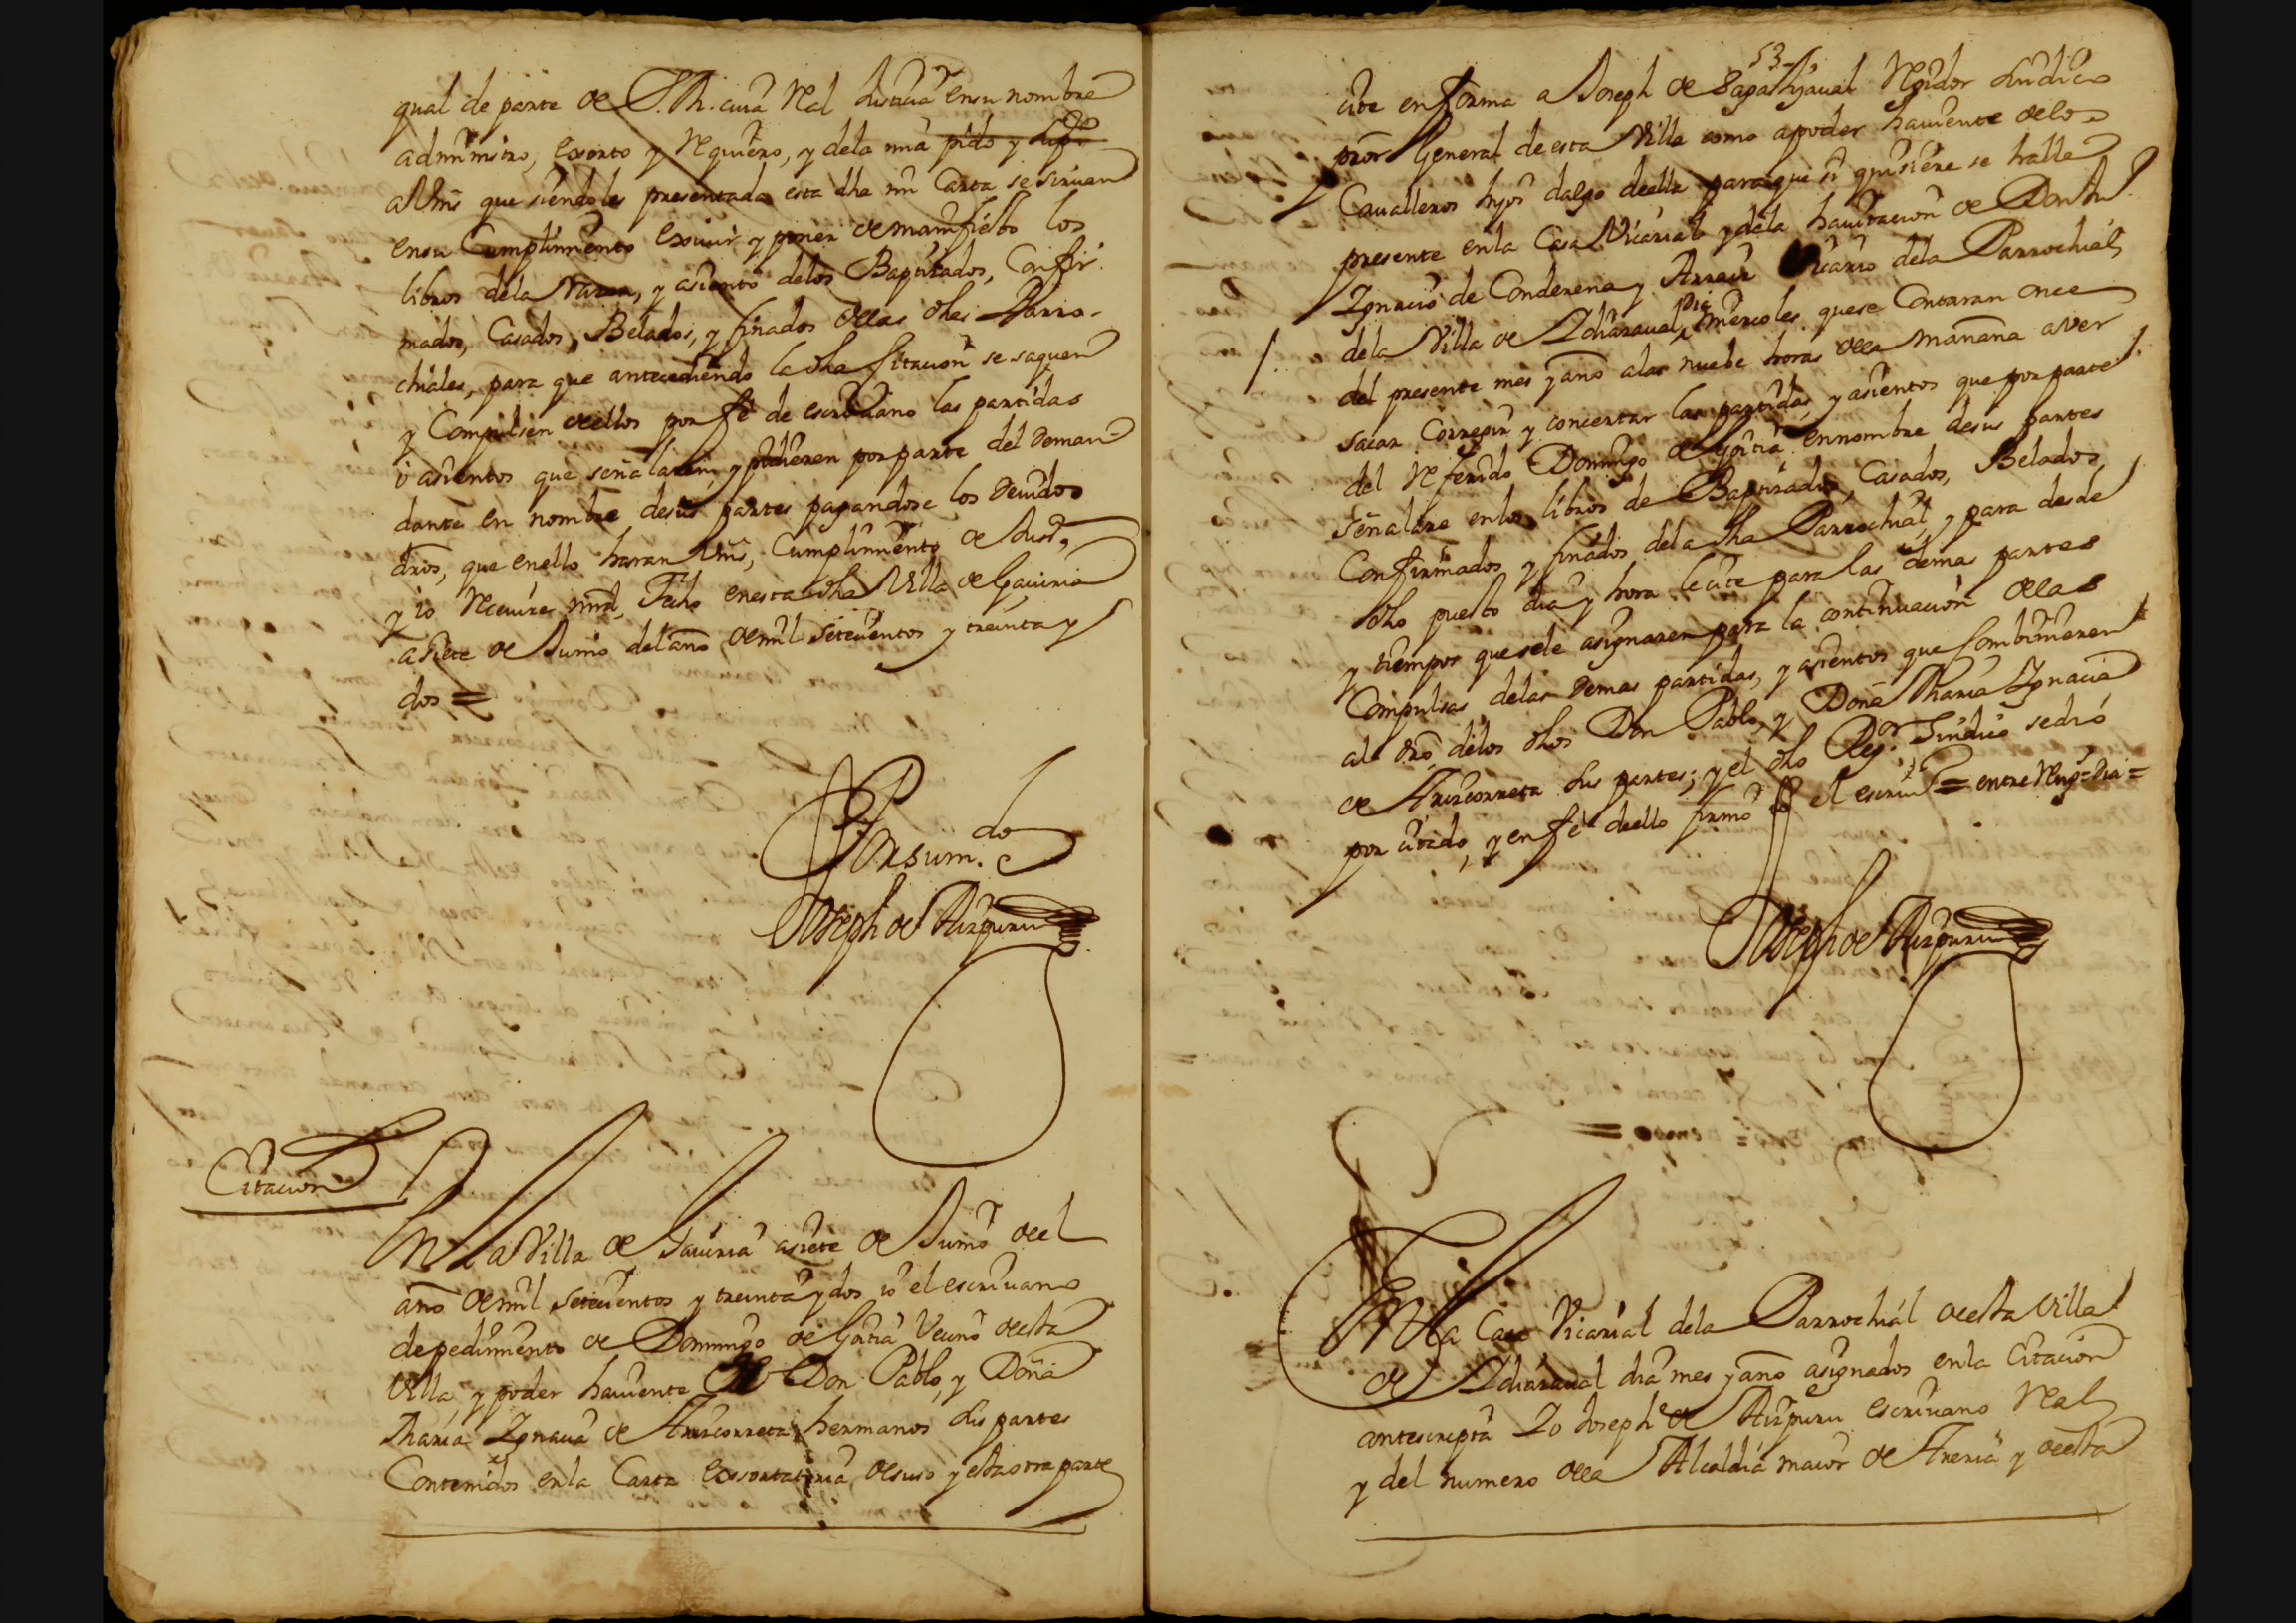 qual de parte de S. M. cuia Real Justicia en su nombre
administro, exsorto y Requiero, y dela mia pido y Supco
a Vms que siendoles presentada esta dha mi Carta se sirvan
en su Cumplimiento exsiuir y poner de manifiesto los
libros dela Razon, y asiento delos Baptizados, Confir-
mados, Casados, Belados, y finados dellas dhas Parro-
chiales, para que antecediendo la dha Sitacion se saquen
y Compulsen dellos por fé de escriuano las partidas
ó asientos que señalaren, y pidieren por parte del deman-
dante en nombre desus partes pagandose los deuidos
dros, que enello haran Vms, Cumplimiento de Justa,
y io Reciuire mrd, Fecho enesta dha Villa de Gauiria
a siete de Junio del año de mil setecientos y treinta y
dos =
Por su mdo
Joseph de Aizpuru
Citacion
En La Villa de Gauiria a siete de Junio del
año de mil setecientos y treinta y dos io el escriuano
de pedimiento de Domingo de Goitia Vecino desta
Villa y poder hauiente de Don Pablo, y Doña
Maria Ignacia de Arizcorreta hermanos sus partes
Contenidos enla Carta exsortatoria de suso y esta otra parte
53
cite en forma a Joseph de Regidor Sindico
pror General de esta Villa como apoder hauiente delos
Caualleros hijos dalgo della para que si quisiere se halle
presente enla Casa Vicarial y dela hauitacion de Don
Ignacio de Conderena y Vicario dela Parrochial
dela Villa de Ichasaual, dia miercoles que se Contaran once
del presente mes y año alas nuebe horas dela mañana a ver
sacar Corregir y concertar las partidas, y asientos que por parte
del Referido Domingo de Goitia en nombre desus partes
señalare enlos libros de Baptizados, Casados, Belados,
Confirmados y finados dela dha Parrochial, y para desde
dho puesto dia y hora le cite para las demas partes
y tiempos que sele asignaren para la continuacion dellas
Compulsas delas demas partidas, y asientos que Combinieren
al dro delos dhos Don Pablo, y Doña Maria Ignacia
de Arizcorreta sus partes; y el dho Regr Sindico se dió
por citado, y en fé dello firmé io el escriuo = entre Rengs = Dia =
Joseph de Aizpuru
En la Casa Vicarial dela Parrochial desta Villa
de Ichasaual dia mes y año asignados enla Citacion
antescripta Io Joseph de Aizpuru escriuano Real
y del numero dela Alcaldia maior de Areria y desta